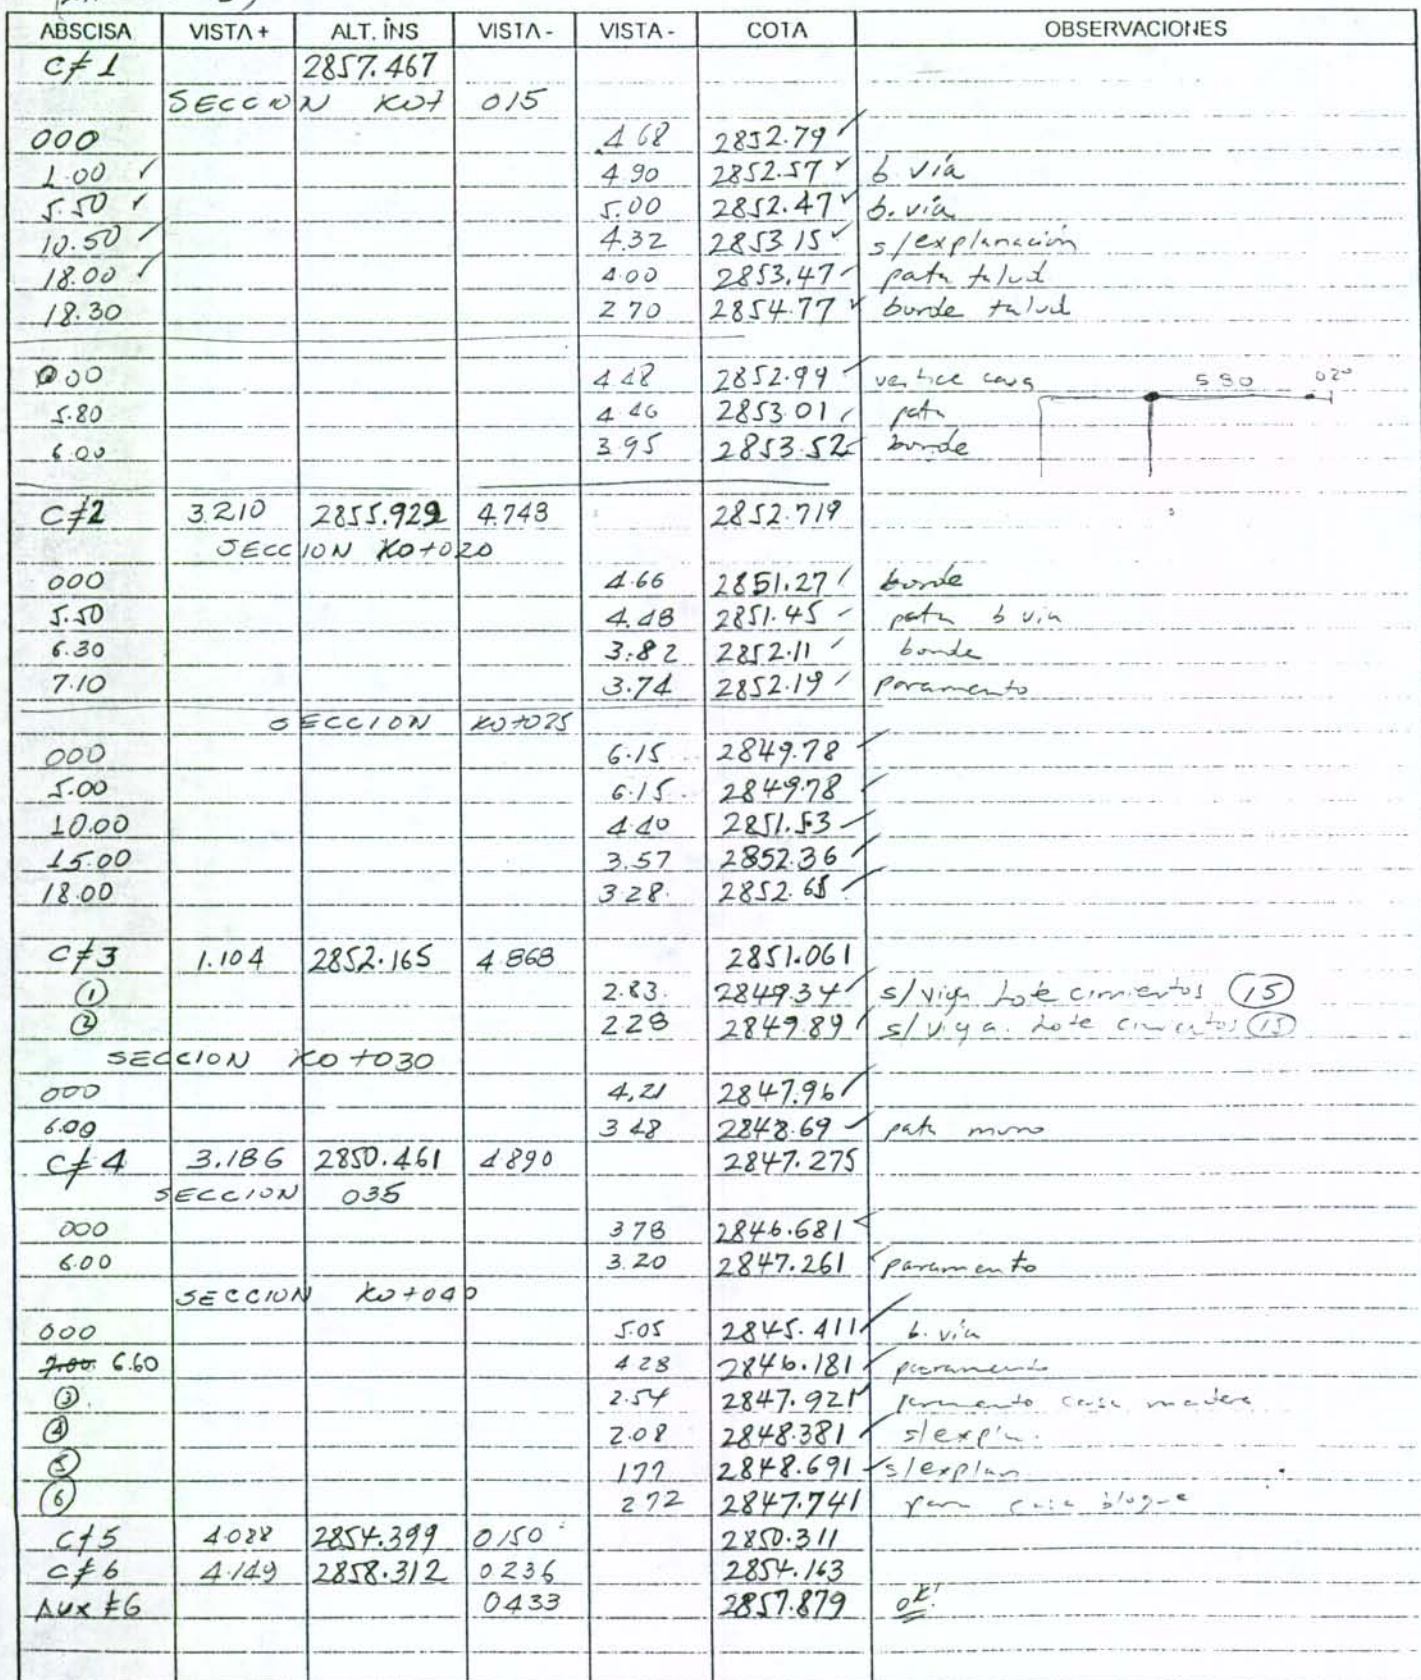 ABSCISA VISTA + ALT. INS VISTA - VISTA - COTA OBSERVACIONES
C≠1 2857.467
SECCION K0+ 015
000 4.68 2852.79 ✓
1.00 ✓ 4.90 2852.57 ✓ b. vía
5.50 ✓ 5.00 2852.47 ✓ b. vía
10.50 ✓ 4.32 2853 15 ✓ s/explanación
18.00 ✓ 4.00 2853.47 ✓ pata talud
18.30 2 70 2854.77 ✓ borde talud
000 4 48 2852.99 ✓ vertice casa 5 80 020
5.80 4 46 2853 01 ✓ pata
6.00 3.95 2853.52 ✓ borde
C≠2 3.210 2855.929 4.748 2852.719
SECCION K0+020
000 4.66 2851.27 ✓ borde
5.50 4.48 2851.45 ✓ pata b via
6.30 3.82 2852.11 ✓ borde
7.10 3.74 2852.19 ✓ paramento
SECCION K0+025
000 6.15 2849.78 ✓
5.00 6.15 2849.78 ✓
10.00 4.40 2851.53 ✓
15.00 3.57 2852.36 ✓
18.00 3.28 2852.65 ✓
C≠3 1.104 2852.165 4 868 2851.061
① 2.83 2849.34 ✓ s/viga Lote cimientos (15)
② 2 28 2849.89 ✓ s/viga. Lote cimientos (15)
SECCION K0+030
000 4.21 2847.96 ✓
6.00 3 48 2848.69 ✓ pata muro
C≠4 3.186 2850.461 4 890 2847.275
SECCION 035
000 3 78 2846.681 ✓
6.00 3.20 2847.261 ✓ paramento
SECCION K0+040
000 5.05 2845.411 ✓ b. vía
7.00. 6.60 4 28 2846.181 ✓ paramento
③. 2.54 2847.921 ✓ paramento casa madera
④ 2.08 2848.381 ✓ s/expln.
⑤ 1 77 2848.691 ✓ s/explan
⑥ 2 72 2847.741 param casa bloque
C≠5 4.088 2854.399 0.150 2850.311
C≠6 4.149 2858.312 0 236 2854.163
Aux #6 0433 2857.879 ok!